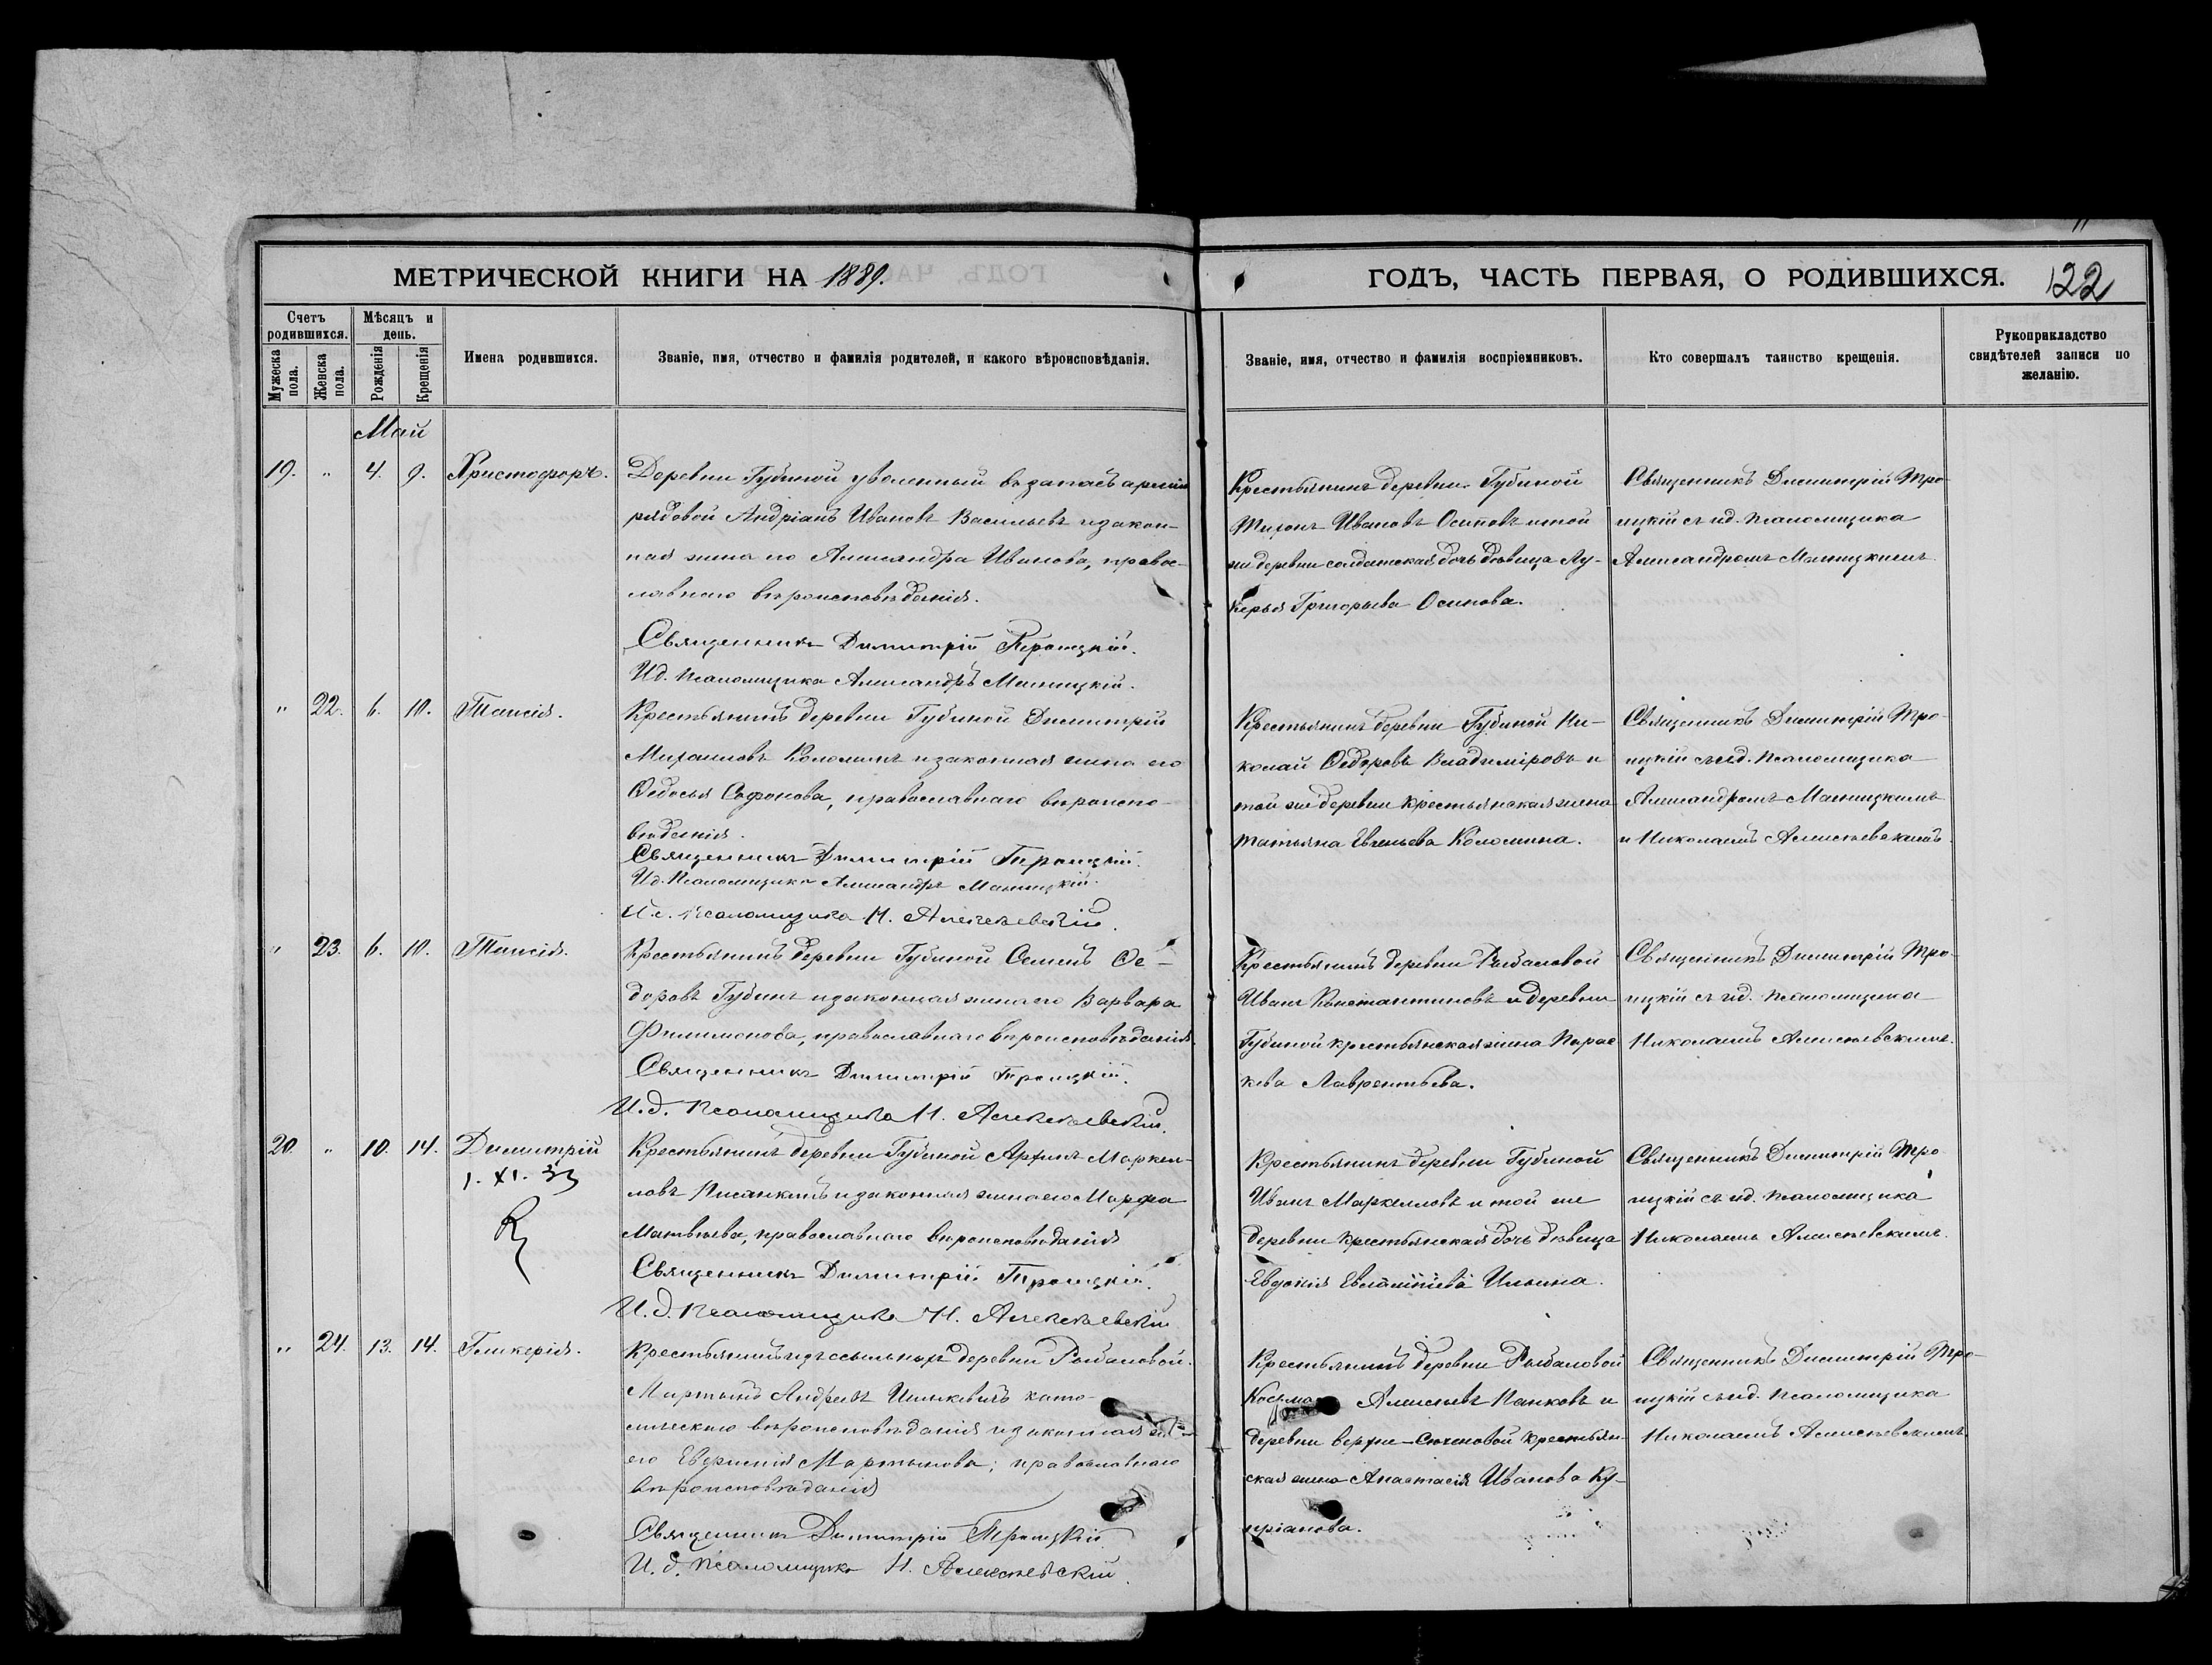 МЕТРИЧЕСКОЙ КНИГИ НА 1889.
ГОДЪ, ЧАСТЬ ПЕРВАЯ, О РОДИВШИХСЯ. 122
Счетъ родившихся.
Мужеска пола.
Женска пола.
Мѣсяцъ и день.
Рожденія
Крещенія
Имена родившихся.
Званіе, имя, отчество и фамилія родителей, и какого вѣроисповѣданія.
Званіе, имя, отчество и фамилія воспріемниковъ.
Кто совершалъ таинство крещенія.
Рукоприкладство свидѣтелей записи по желанію.
Май
19. " 4. 9. Христофоръ.
Деревни Губиной уволенный въ запасъ арміи
рядовой Андріанъ Ивановъ Васильевъ и закон-
ная жена его Александра Иванова, правос-
лавнаго вѣроисповѣданія.
Священникъ Димитрій Троицкій.
И.д. псаломщика Александръ
Крестьянинъ деревни Губиной
Тихонъ Ивановъ Осиповъ и той
же деревни солдатская дочь дѣвица Лу-
керья Григорьева Осипова.
Священникъ Димитрій Тро-
ицкій съ и.д. псаломщика
Александромъ
" 22. 6. 10. Таисія.
Крестьянинъ деревни Губиной Димитрій
Михаиловъ Коломинъ и законная жена его
Ѳедосья Софонова, православнаго вѣроиспо-
вѣданія.
Священникъ Димитрій Троицкій.
И.д. Псаломщика Александръ
И.д. псаломщика Н. Алексѣевскій.
Крестьянинъ деревни Губиной Ни-
колай Ѳедоровъ Владиміровъ и
той же деревни крестьянская жена
Татьяна Евгеньева Коломина.
Священникъ Димитрій Тро-
ицкій съ и.д. псаломщика
Александромъ
и Николаемъ Алексѣевскимъ.
" 23. 6. 10. Таисія.
Крестьянинъ деревни Губиной Семенъ Ѳе-
доровъ Губинъ и законная жена его Варвара
Филимонова, православнаго вѣроисповѣданія.
Священникъ Димитрій Троицкій.
И.д. псаломщика Н. Алексѣевскій.
Крестьянинъ деревни Рыбаловой
Иванъ Константиновъ и деревни
Губиной крестьянская жена Парас-
кева Лаврентьева.
Священникъ Димитрій Тро-
ицкій съ и.д. псаломщика
Николаемъ Алексѣевскимъ.
20. " 10. 14. Димитрій
1. XI. 33
Крестьянинъ деревни Губиной Маркел-
ловъ и законная жена его Марфа
Матвѣева, православнаго вѣроисповѣданія
Священникъ Димитрій Троицкій.
И.д. псаломщика Н. Алексѣевскій
Крестьянинъ деревни Губиной
Иванъ Маркелловъ и той же
деревни крестьянская дочь дѣвица
Евдокія Евлампіева Ильина.
Священникъ Димитрій Тро-
ицкій съ и.д. псаломщика
Николаемъ Алексѣевскимъ.
" 24. 13. 14. Гликерія.
Крестьянинъ изъ ссыльныхъ деревни Рыбаловой.
Мартынъ Андреевъ като-
лическаго вѣроисповѣданія и законная
его Евгенія Мартынова; православнаго
вѣроисповѣданія
Священникъ Димитрій Троицкій
И.д. псаломщика Н. Алексѣевскій.
Крестьянинъ деревни Рыбаловой
Косьма Алексѣевъ Панковъ и
деревни верхне-Сеченовой крестьян-
ская жена Анастасія Иванова Ку-
пріанова.
Священникъ Димитрій Тро-
ицкій съ и.д. псаломщика
Николаемъ Алексѣевскимъ